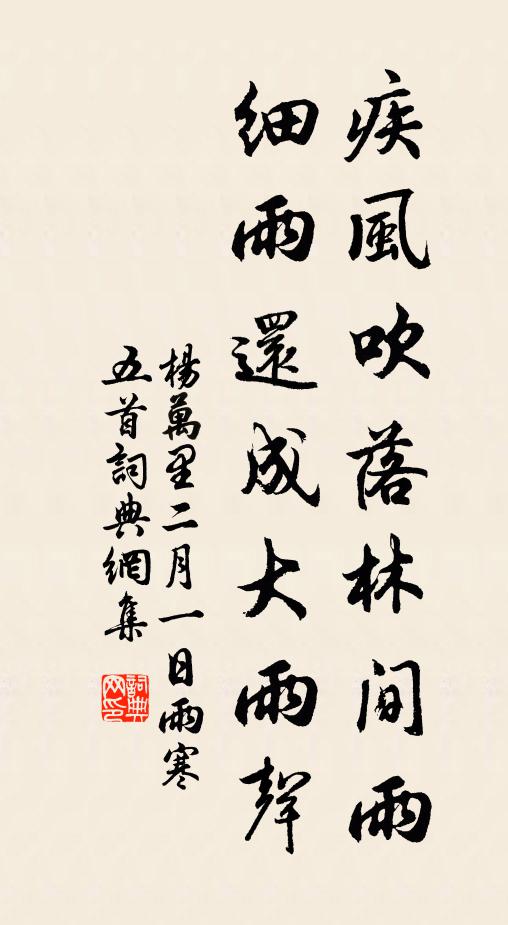 疾風吹落林間雨
細雨還成大雨聲
楊萬里二月一日雨寒
五首詞典網集
詞典
网印